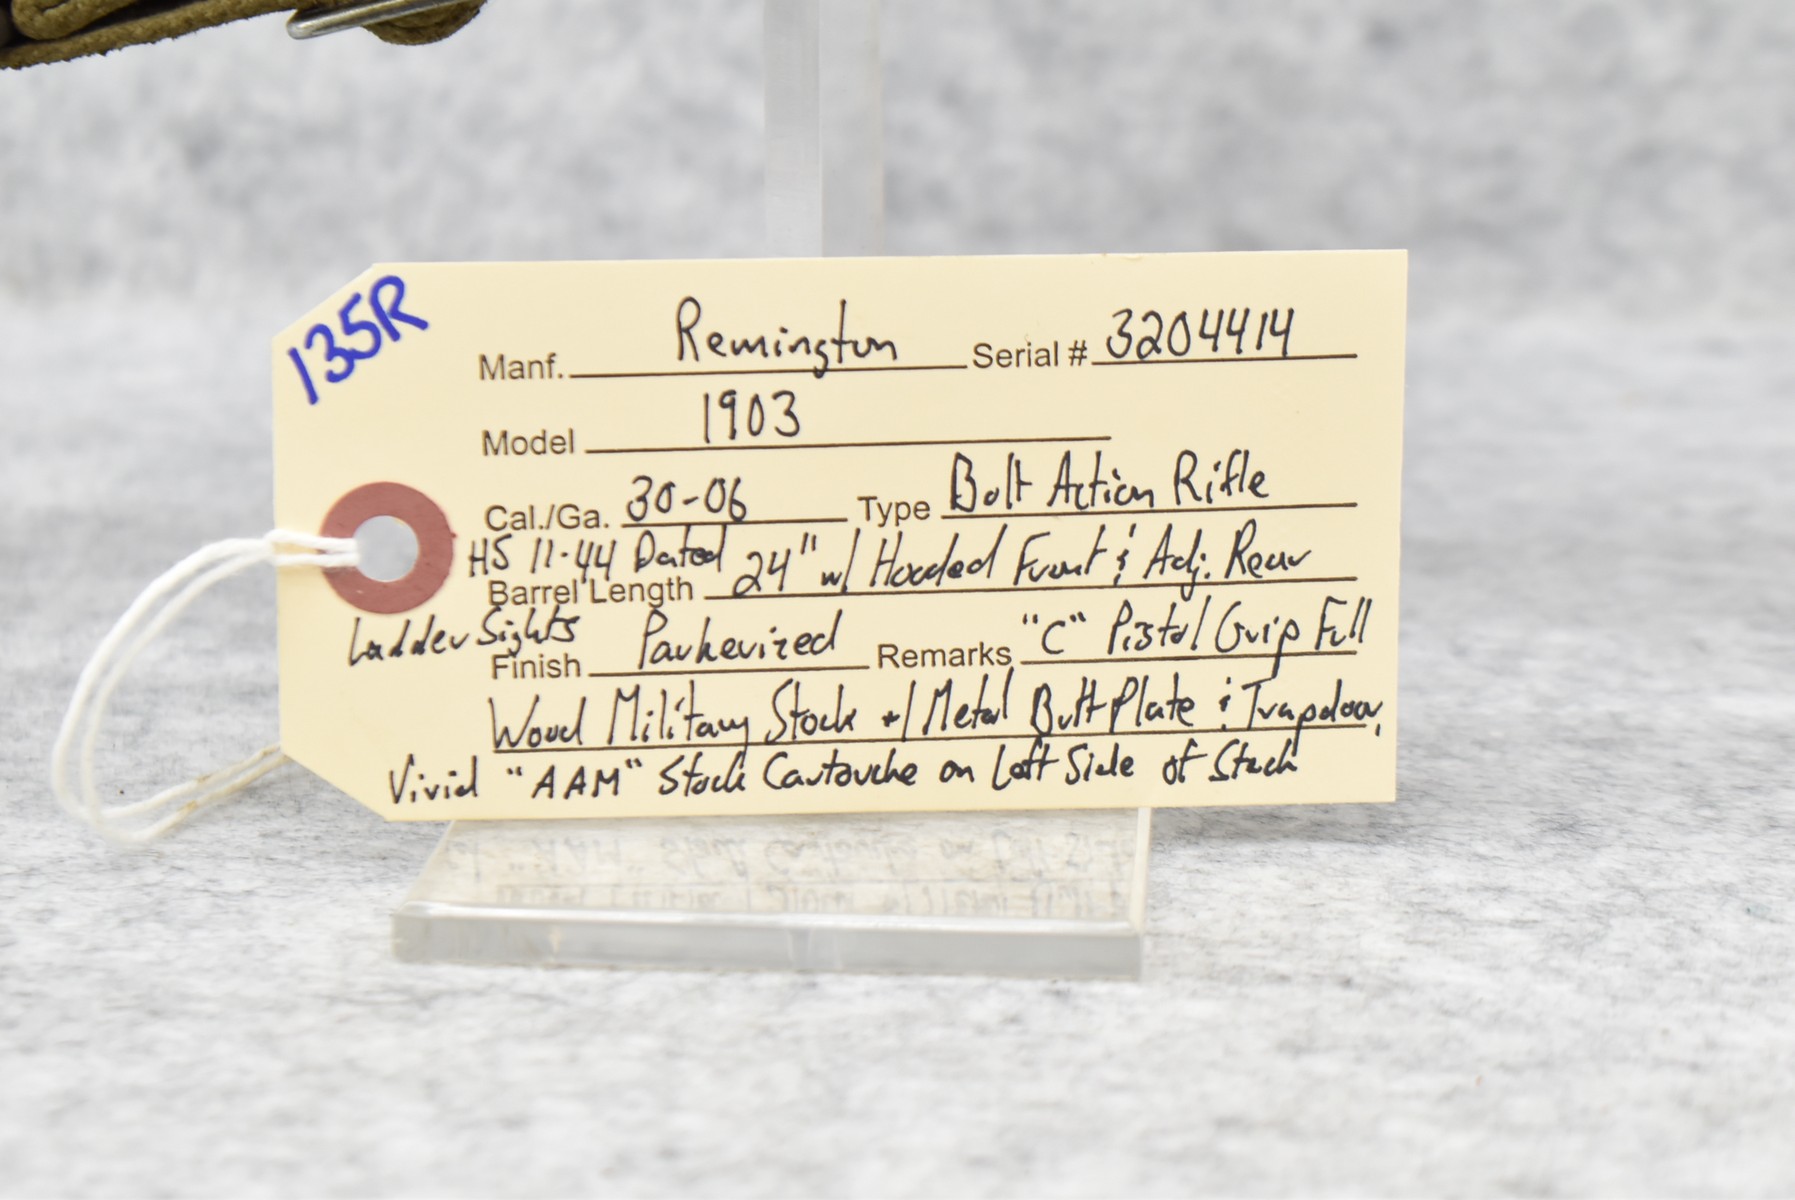 135R
Manf. Remington Serial # 3204414
Model 1903
Cal./Ga. 30-06 Type Bolt Action Rifle
HS 11-44 Dated
Barrel Length 24" w/ Hooded Front & Adj. Rear
Ladder Sights
Finish Parkerized Remarks "C" Pistol Grip Full
Wood Military Stock w/ Metal Buttplate & Trapdoor,
Vivid "AAM" Stock Cartouche on Left Side of Stock